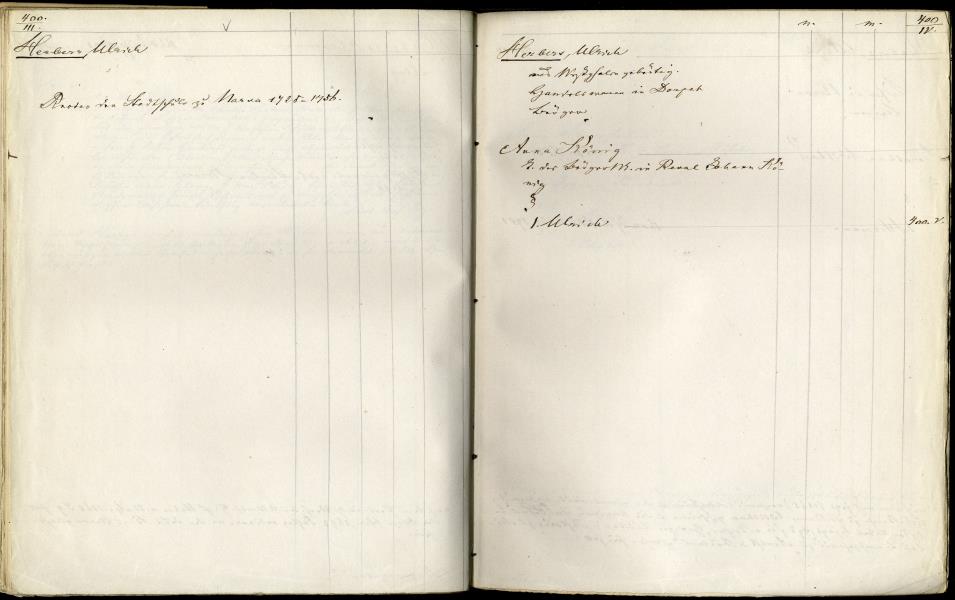 400.
III.
Herbers, Ulrich
Rector der Stadtschule zu Narva 1725-1736.
n. m. 400
IV.
Herbers, Ulrich
aus Westphalen gebürtig.
Handelsmann in Dorpat
Bürger
Anna König
T. des in Reval Johann Kö-
nig
1. Ulrich 400. V.